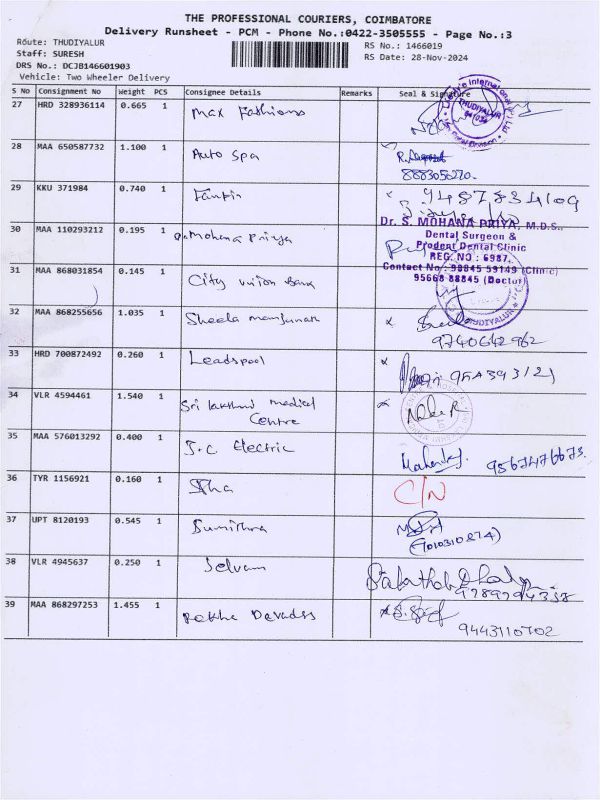 THE PROFESSIONAL COURIERS, COIMBATORE
Delivery Runsheet - PCM - Phone No.:0422-3505555 - Page No.:3
Route: THUDIYALUR
RS No.: 1466019
Staff: SURESH
RS Date: 28-Nov-2024
DRS No.: DCJB146601903
Vehicle: Two Wheeler Delivery
S No Consignment No Weight PCS Consignee Details Remarks Seal & Signature
27 HRD 328936114 0.665 1 Max Fashions
THUDIYALUR
28 MAA 650587732 1.100 1 Auto Spa
8883056270.
29 KKU 371984 0.740 1
9487834109
30 MAA 110293212 0.195 1 Mohana Priya
Dr. S. MOHANA PRIYA, M.D.S.,
Dental Surgeon &
Prodent Dental Clinic
REG. NO : 6987.
Contact No : 98845 59149 (Clinic)
95668 88845 (Doctor)
31 MAA 868031854 0.145 1 City Union Bank
THUDIYALUR
32 MAA 868255656 1.035 1 Sheela Manjunath
9740642962
33 HRD 700872492 0.260 1 Leadspool
34 VLR 4594461 1.540 1 Sri Lakshmi Medical
Centre
35 MAA 576013292 0.400 1 J.C Electric
9567476673.
36 TYR 1156921 0.160 1
C/N
37 UPT 8120193 0.545 1 Sumithra
38 VLR 4945637 0.250 1 Selvam
9789794358
39 MAA 868297253 1.455 1 Rekha Devadss
9443110702